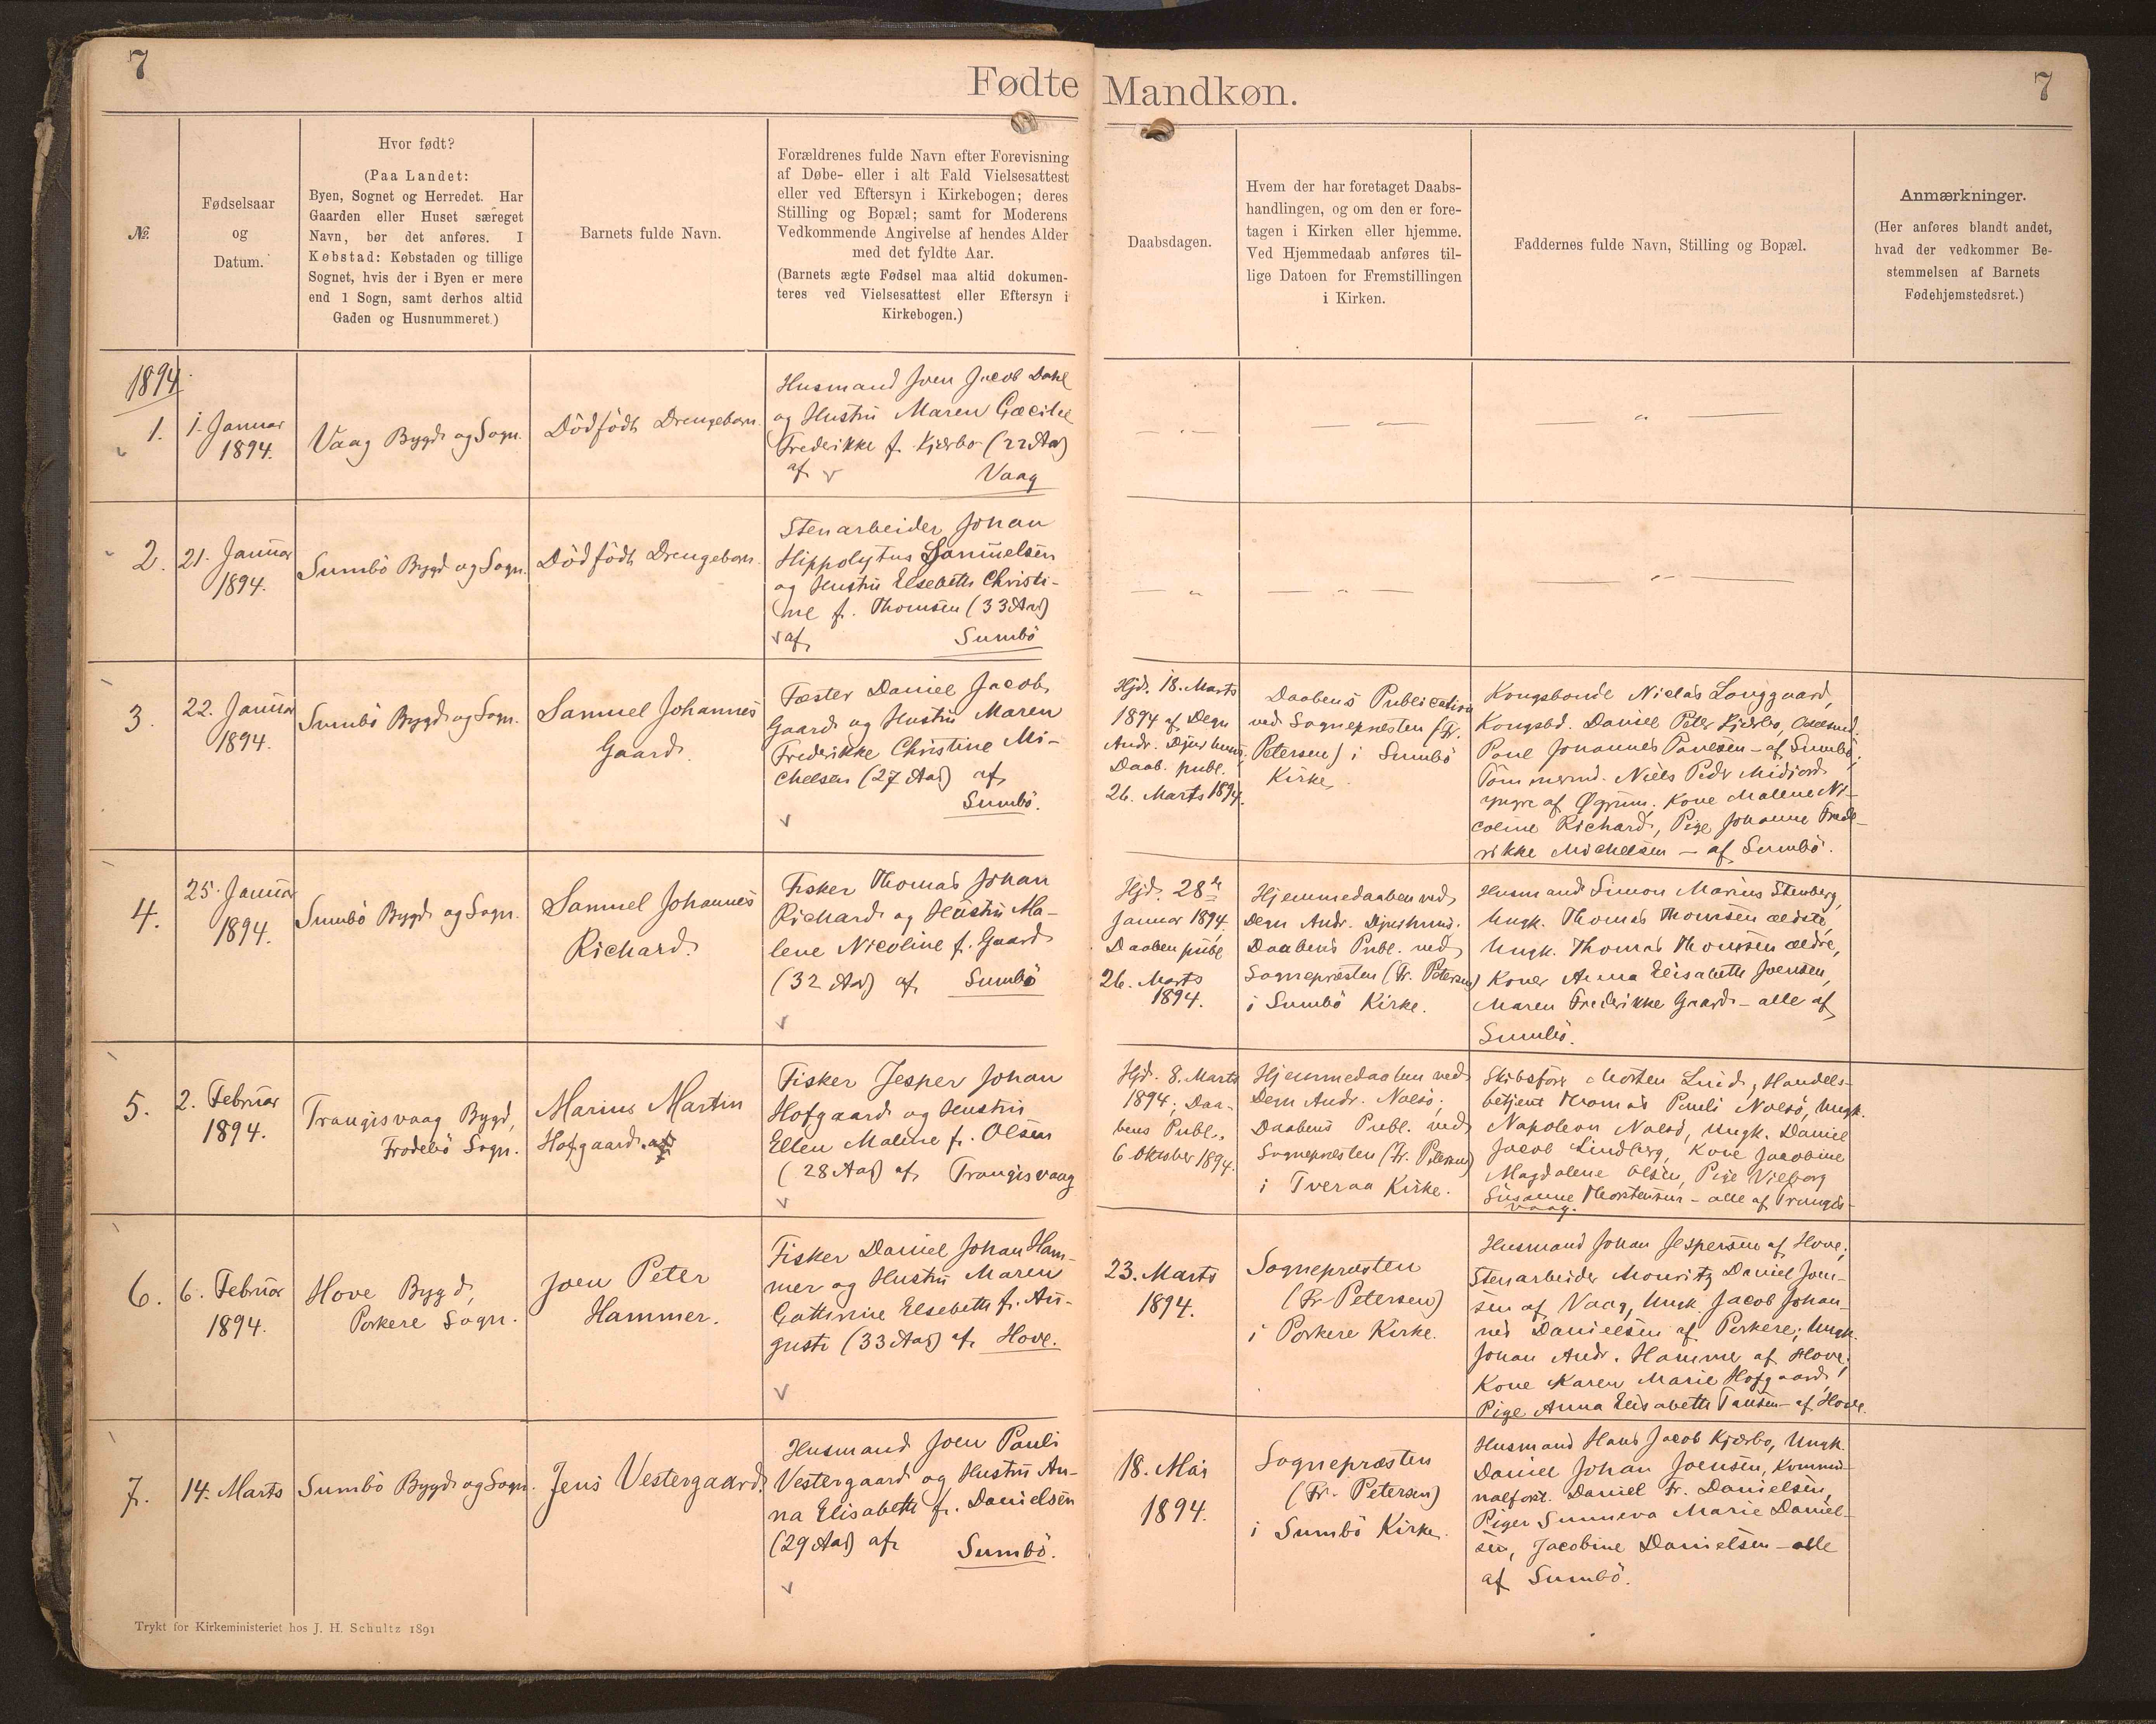 7
Fødte Mandkøn.
7
№
Fødselsaar
og
Datum.
Hvor født?
(Paa Landet:
Byen, Sognet og Herredet. Har
Gaarden eller Huset særeget
Navn, bør det anføres. I
Købstad: Købstaden og tillige
Sognet, hvis der i Byen er mere
end 1 Sogn, samt derhos altid
Gaden og Husnummeret.)
Barnets fulde Navn.
Forældrenes fulde Navn efter Forevisning
af Døbe- eller i alt Fald Vielsesattest
eller ved Eftersyn i Kirkebogen; deres
Stilling og Bopæl; samt for Moderens
Vedkommende Angivelse af hendes Alder
med det fyldte Aar.
(Barnets ægte Fødsel maa altid dokumen-
teres ved Vielsesattest eller Eftersyn i
Kirkebogen.)
Daabsdagen.
Hvem der har foretaget Daabs-
handlingen, og om den er fore-
tagen i Kirken eller hjemme.
Ved Hjemmedaab anføres til-
lige Datoen for Fremstillingen
i Kirken.
Faddernes fulde Navn, Stilling og Bopæl.
Anmærkninger.
(Her anføres blandt andet,
hvad der vedkommer Be-
stemmelsen af Barnets
Fødehjemstedsret.)
1894
1.
1. Januar
1894.
Vaag Bygd og Sogn.
Dödfödt Drengebarn.
Husmand Joen Jacob Dahl
og Hustru Maren Cæcilie
Frederikke f. Kjærbo (22 Aar)
af Vaag
— " —
— " —
— " —
2.
21. Januar
1894.
Sumbö Bygd og Sogn.
Dödfödt Drengebarn.
Stenarbeider Johan
Hippolytus Samuelsen
og Hustru Elsebeth Christi-
ne f. Thomsen (33 Aar)
af Sumbö
— " —
— " —
— " —
3.
22. Januar
1894.
Sumbö Bygd og Sogn.
Samuel Johannes
Gaard.
Fæster Daniel Jacob
Gaard og Hustru Maren
Frederikke Christine Mi-
chelsen (27 Aar) af
Sumbö.
Hjd. 18. Marts
1894 af Degn
Andr. Djurhuus,
Daab. publ.
26. Marts 1894.
Daabens Publication
ved Sognepræsten (Fr.
Petersen) i Sumbö
Kirke.
Kongsbonde Niclas Longgaard,
Kongsbd. Daniel Peter Kjærbo,
Poul Johannes Poulsen - af Sumbö;
Tömmermd. Niels Pedr Midjord
yngre af Øgrum; Kone Malene Ni-
coline Richard, Pige Johanne Frede-
rikke Michelsen - af Sumbö.
4.
25. Januar
1894.
Sumbö Bygd og Sogn.
Samuel Johannes
Richard.
Fisker Thomas Johan
Richard og Hustru Ma-
lene Nicoline f. Gaard
(32 Aar) af Sumbö
Hjd. 28de
Januar 1894.
Daaben publ
26. Marts
1894.
Hjemmedaaben ved
Degn Andr. Djurhuus.
Daabens Publ. ved
Sognepræsten (Fr. Petersen)
i Sumbö Kirke.
Husmand Simon Marius Stenberg,
Ungk. Thomas Thomsen ældste,
Ungk. Thomas Thomsen ældre,
Koner Anna Elisabeth Joensen,
Maren Frederikke Gaard - alle af
Sumbö.
5.
2. Februar
1894.
Trangisvaag Bygd,
Frodebö Sogn.
Marius Martin
Hofgaard.
Fisker Jesper Johan
Hofgaard og Hustru
Ellen Malene f. Olsen
(28 Aar) af Trangisvaag
Hjd. 8. Marts
1894; Daa-
bens Publ.
6 Oktober 1894.
Hjemmedaaben ved
Degn Andr. Nolsö;
Daabens Publ. ved
Sognepræsten (Fr. Petersen)
i Tveraa Kirke.
Skibsförer Morten Luid, Handels-
betjent Thomas Pauli Nolsö, Ungk.
Napoleon Nolsö, Ungk. Daniel
Jacob Lindberg, Kone Jacobine
Magdalene Olsen, Pige Vilborg
Susanne Thorsteinsen - alle af Trangis-
vaag.
6.
6. Februar
1894.
Hove Bygd,
Porkere Sogn.
Joen Peter
Hammer.
Fisker Daniel Johan Ham-
mer og Hustru Maren
Cathrine Elsebeth f. Au-
gust (33 Aar) af Hove.
23. Marts
1894.
Sognepræsten
(Fr. Petersen)
i Porkere Kirke.
Husmand Johan Jespersen af Hove;
Stenarbeider Mouritz Daniel Joen-
sen af Vaag, Ungk. Jacob Johan-
nes Danielsen af Porkere; Ungk.
Johan Andr. Hammer af Hove;
Kone Karen Marie Hofgaard,
Pige Anna Elisabeth Tausen - af Hove.
7.
14. Marts
Sumbö Bygd og Sogn.
Jens Vestergaard.
Husmand Joen Pauli
Vestergaard og Hustru An-
na Elisabeth f. Danielsen
(29 Aar) af Sumbö.
18. Mai
1894.
Sognepræsten
(Fr. Petersen)
i Sumbö Kirke.
Husmand Hans Jacob Kjærbo, Ungk.
Daniel Johan Joensen, Kommu-
nalforst. Daniel Fr. Danielsen,
Piger Sunneva Marie Daniel-
sen, Jacobine Danielsen - alle
af Sumbö.
Trykt for Kirkeministeriet hos J. H. Schultz 1891